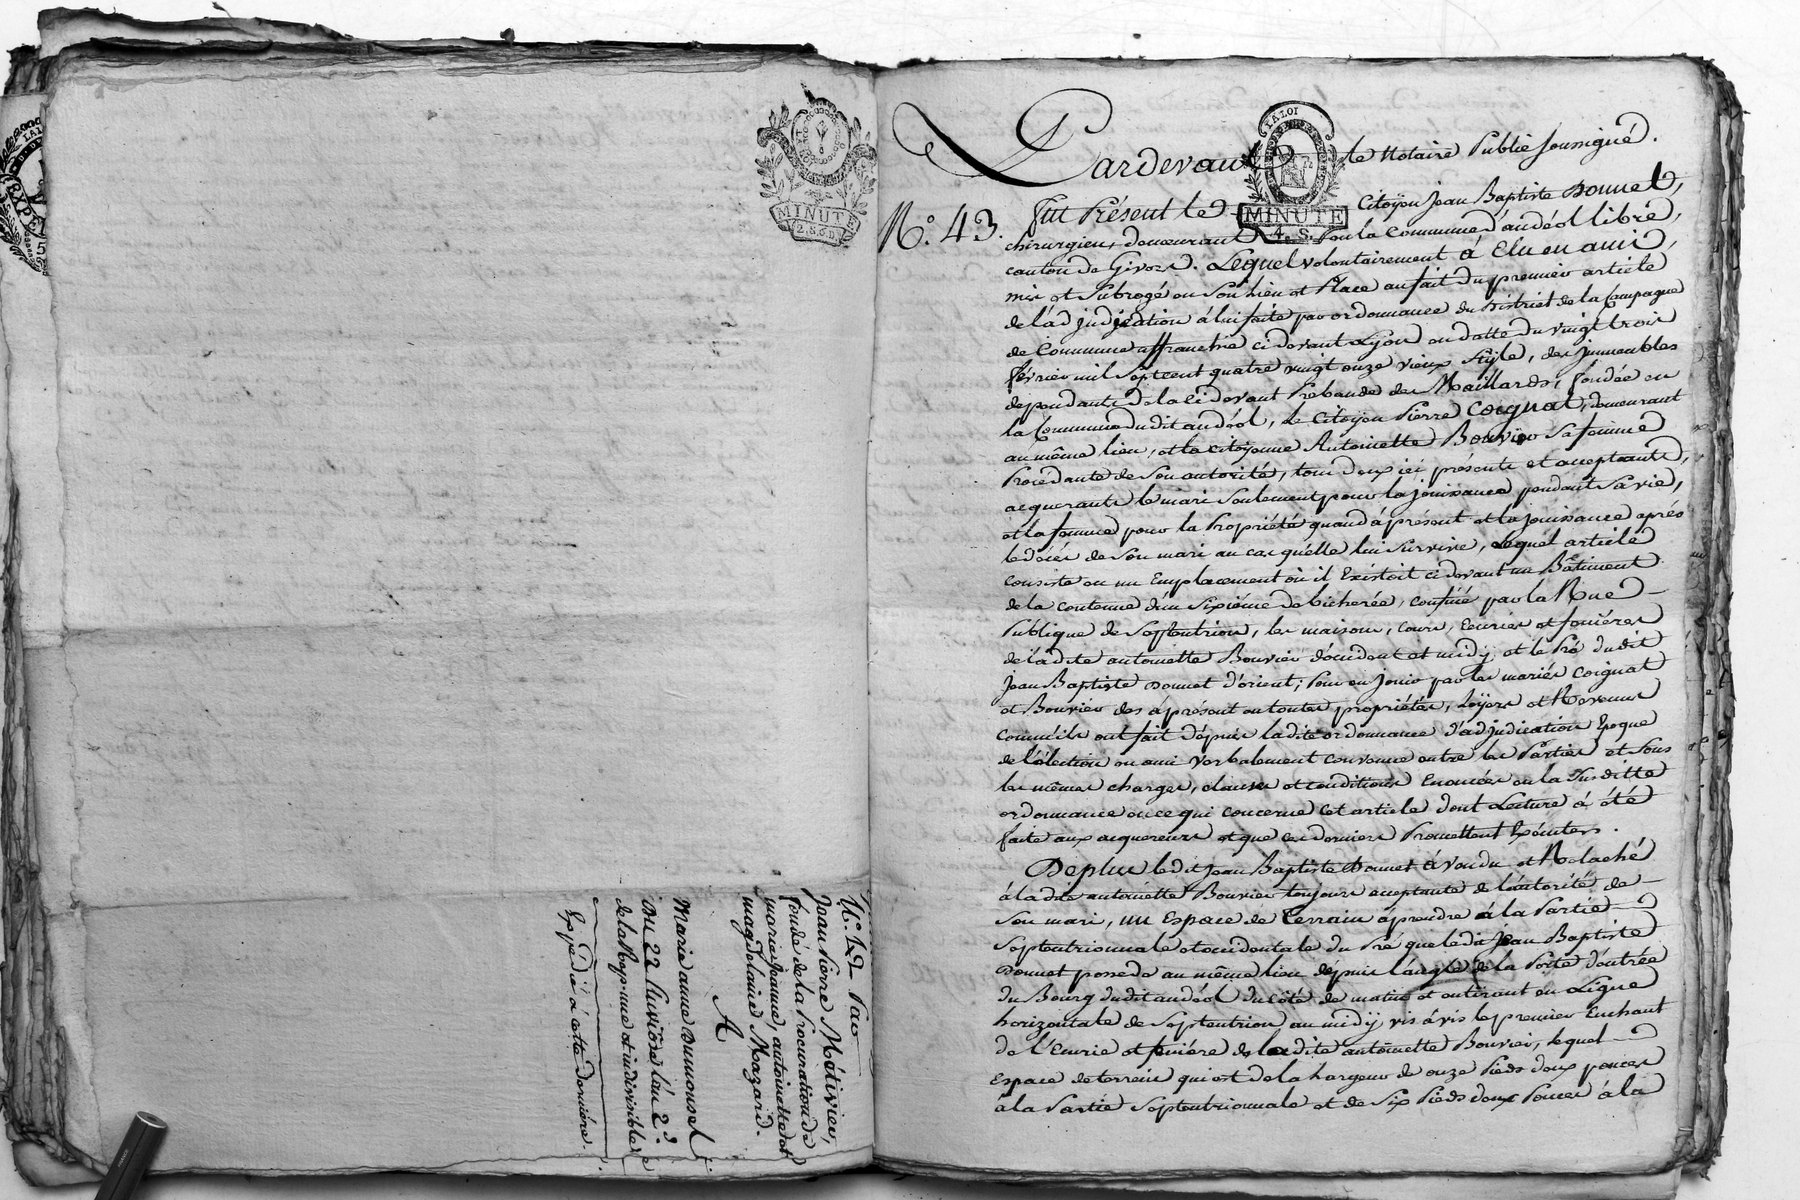 MINUTE
2. S. 6. D.
N.° 42 Par
Jean Pierre Métivier,
fondé de la Procuration de
marie Jeanne, antoinette et
magdelaine Mazard.
A
Marie anne Dumonsel
Du 22 Pluviôse L'an 2.d
de la Rep. une et indivisible
Expédié à cette dernière.
LA LOI
MINUTE
4. S.
Pardevant le Notaire Public soussigné.
N.° 43. fut Présent le Citoyen Jean Baptiste Donnet,
chirurgien, demeurant en la Commune d'andéol libre,
canton de Givors. Lequel volontairement à Elu en ami,
mis et Subrogé en son lieu et Place au fait du premier article
de l'adjudication à lui faite par ordonnance du District de la Campagne
de Commune affranchie ci devant Lyon en datte du vingt trois
février mil Sept cent quatre vingt onze vieux Style, des immeubles
dépendants de la ci devant Prébande des Maillards, fondée en
la Commune dudit andéol, le Citoyen Pierre Coignat, demeurant
au même lieu, et la citoyenne Antoinette Bouvier sa femme
Procédante de Son autorité, tous deux ici présents et acceptants,
acquerants le mari Seulement pour la jouissance pendant Sa vie,
et la femme pour la Propriété quand à présent et la jouissance après
le décés de Son mari au cas qu'elle lui Survive, Lequel article
Consiste en un Emplacement où il Existoit ci devant un Bâtiment
de la contenue d'un Sixième de bicherée, confiné par la Rue
Publique de Septentrion, les maisons, Cours, Ecuries et fenières
de ladite antoinette Bouvier d'occident et midy, et le Pré dudit
Jean Baptiste Donnet d'orient; Pour en Jouir par les mariés Coignat
et Bouvier dès à présent en toutes propriétés, Loyers et Revenus
comme ils ont fait depuis ladite ordonnance d'adjudication Epoque
de l'élection en ami verbalement convenue entre les Parties et Sous
les mêmes charges, clauses et conditions Enoncées en la Susditte
ordonnance en ce qui concerne Cet article dont Lecture à été
faite aux acquereurs et que ces derniers Promettent Exécuter.
De plus ledit Jean Baptiste Donnet à vendu et Relaché
à ladite antoinette Bouvier toujours acceptante de l'autorité de
Son mari, un Espace de terrain à prendre à la Partie
Septentrionnale et occidentale du Pré que ledit Jean Baptiste
Donnet possede au même lieu depuis l'angle de la Porte d'entrée
du Bourg dudit andéol du côté de matin et en tirant en Ligne
horizontale de Septentrion au midy, vis à vis le premier Enchant
de l'Ecurie et fenière de ladite antoinette Bouvier, lequel
Espace de terrein qui est de la Largeur de onze Pieds deux pouces
à la Partie Septentrionnale et de Six Pieds deux Pouces à la